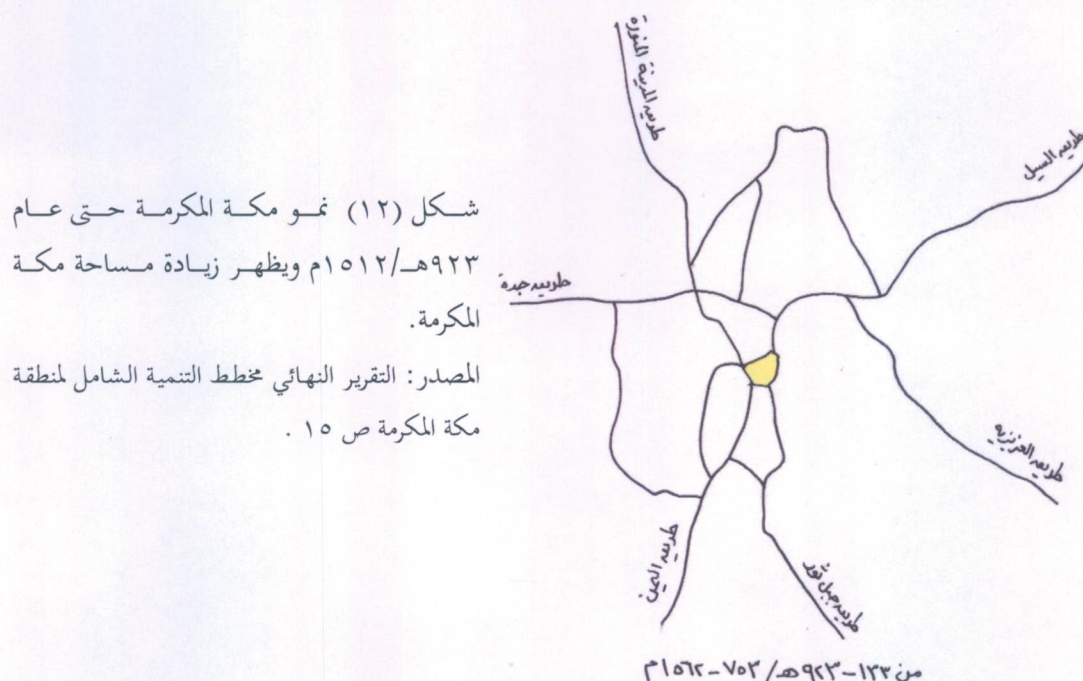 شكل (١٢) نمو مكة المكرمة حتى عام
٩٢٣هـ/١٥١٢م ويظهر زيادة مساحة مكة
المكرمة.
المصدر: التقرير النهائي مخطط التنمية الشامل لمنطقة
مكة المكرمة ص ١٥ .
طريق المدينة المنورة
طريق السيل
طريق جدة
طريق العزيزية
طريق اليمن
طريق جبل ثور
من ١٣٣-٩٢٣هـ/ ٧٥٣-١٥٦٢م